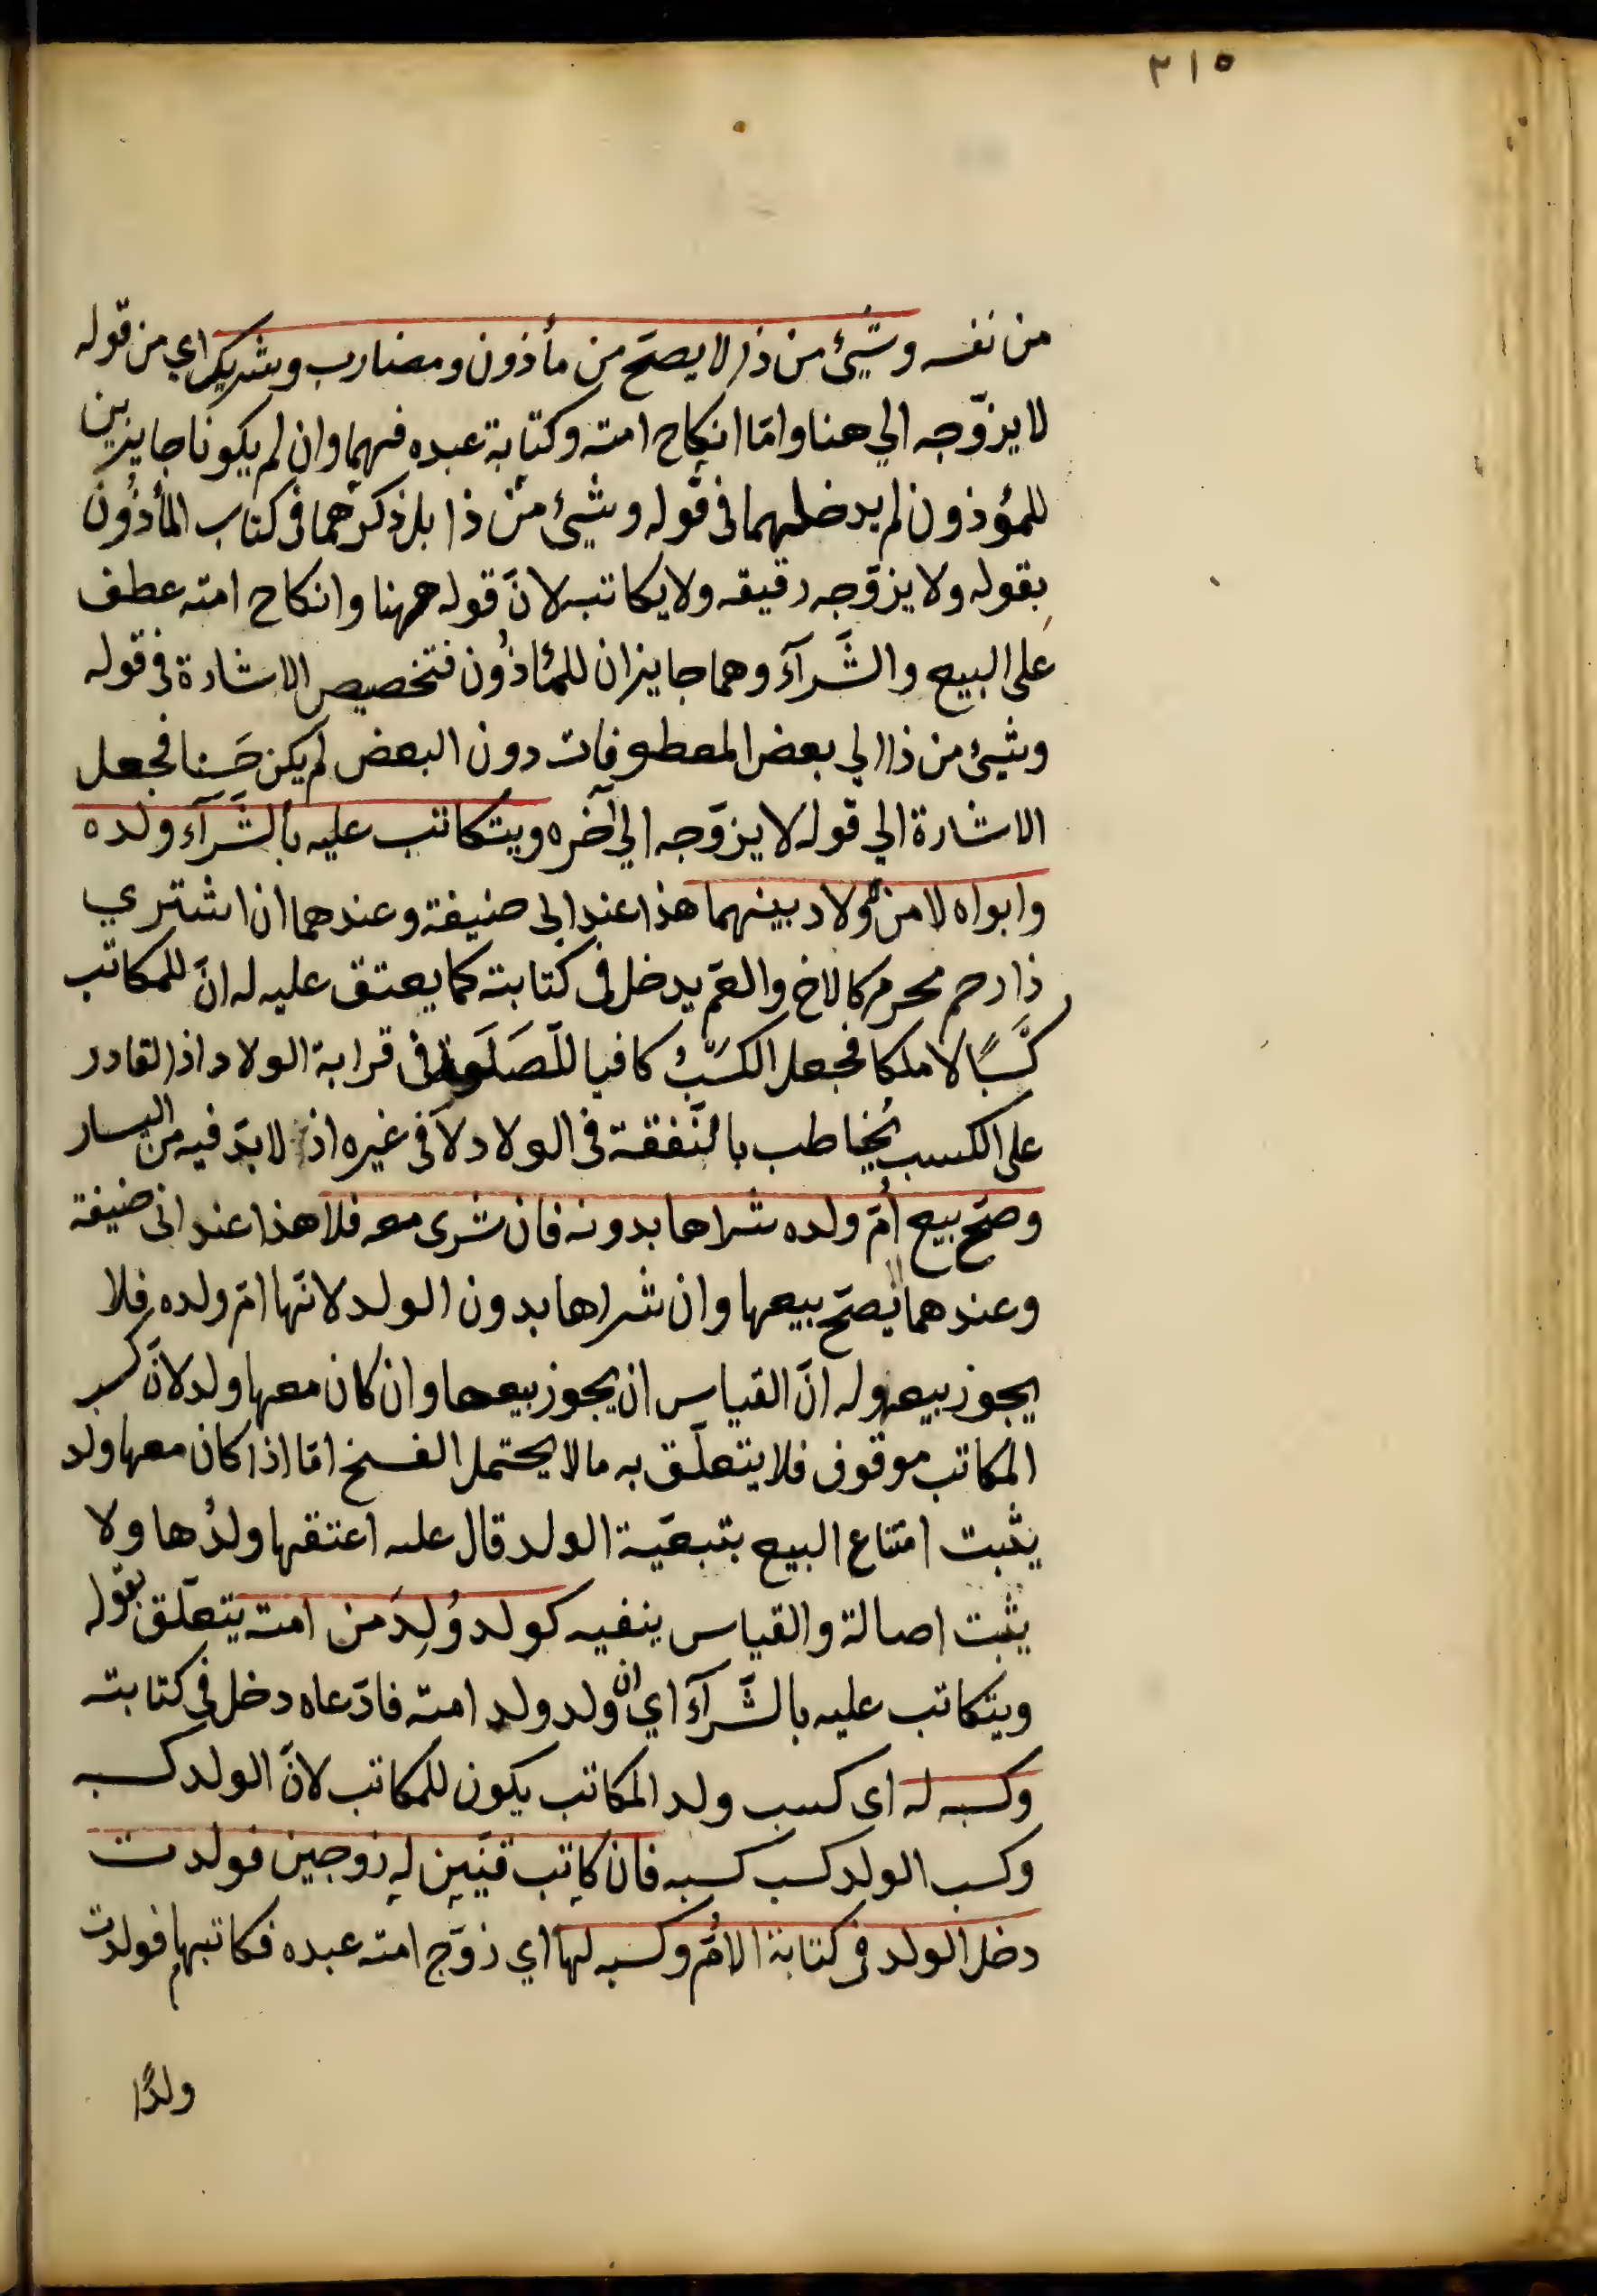 ٢١٥
من نفسه وشيئ من ذا لا يصحّ من مأذون ومضارب وشريك اي من قوله
لا يزوّجه الي هنا وامّا انكاح امته وكتابة عبده فهما وان لم يكونا جايزين
للمؤذون لم يدخلهما في قوله وشيئ من ذا بل ذكرهما في كتاب المأذون
بقوله ولا يزوّجه رقيقه ولا يكاتبه لانّ قوله ههنا وانكاح امته عطف
على البيع والشَّرآء وهما جايزان للمأذون فتخصيص الاشارة في قوله
وشيئ من ذا الي بعض المعطوفات دون البعض لم يكن حَسنا فجعل
الاشارة الي قوله لا يزوّجه الي آخره ويتكاتب عليه بالشَّرآء ولده
وابواه لا من لا ولاد بينهما هذا عند ابي حنيفة وعندهما ان اشتري
ذا رحم محرم كالاخ والعمّ يدخل في كتابته كما يعتق عليه له انّ للمكاتب
كسبًا لا ملكا فجعل الكسبُ كافيا للصَّلَة في قرابة الولاد اذ القادر
على الكسب يُخاطب بالنّفقة في الولاد لا في غيره اذ لا بدّ فيه من اليسار
وصحّ بيع اُمّ ولده شراها بدونه فان شرى معه فلا هذا عند ابي حنيفة
وعندهما لا يصحّ بيعها وان شراها بدون الولد لانّها امّ ولده فلا
يجوز بيعها وله انّ القياس ان يجوز بيعها وان كان معها ولد لانّ كسب
المكاتب موقوف فلا يتعلّق به ما لا يحتمل الفسخ امّا اذا كان معها ولد
يثبت امتناع البيع بتبعيّة الولد قال عله اعتقها ولدُها ولا
يثبت اصالة والقياس ينفيه كولد وُلِدَ من امته يتعلّق بقوله
ويتكاتب عليه بالشّرآء اي ان ولد ولد امته فادّعاه دخل في كتابته
وكسبه له اى كسب ولد المكاتب يكون للمكاتب لانّ الولد كسبه
وكسب الولد كسب كسبه فان كاتب قنّينِ له زوجين فولدت
دخل الولد في كتابة الامُّ وكسبه لها اي زوّج امته عبده فكاتبهما فولدت
ولدًا